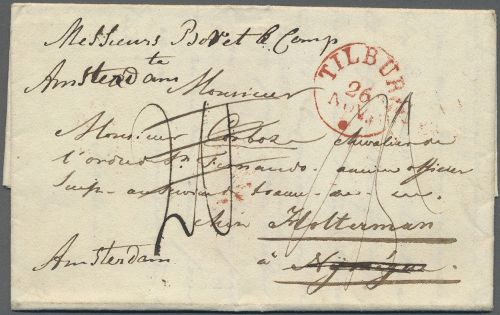 Messieurs Bovet & Comp
te
Amsterdam
Monsieur
TILBURG
26
NOV
Monsieur Corboz Chevalier de
l'ordre St. Fernando. ancien officier
chez Holterman
à Nymègue.
Amsterdam